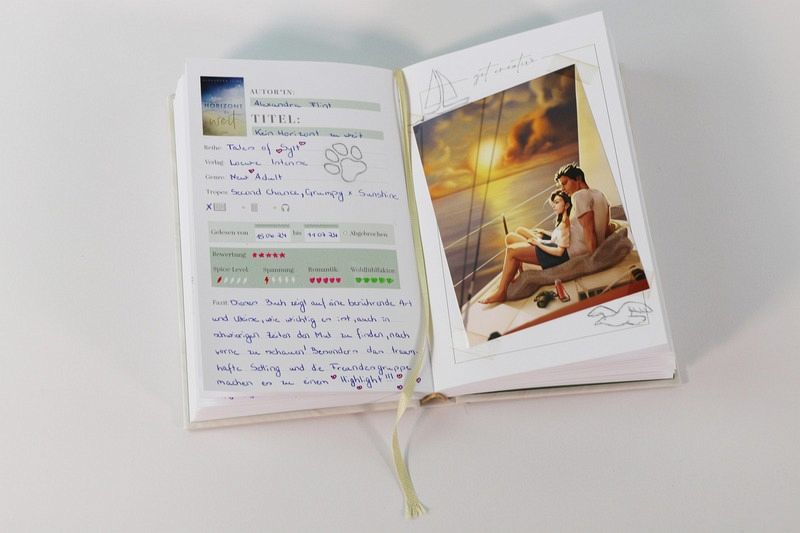 HORIZONT
weit
AUTOR*IN:
Alexandra Flint
TITEL:
Kein Horizont zu weit
Reihe: Tales of Sylt
Verlag: Loewe Intense
Genre: New Adult
Tropes: Second Chance, Grumpy x Sunshine
X
Gelesen von 15.06.24 bis 11.07.24 Abgebrochen
Bewertung:
Spice-Level: Spannung: Romantik: Wohlfühlfaktor:
Fazit: Dieses Buch zeigt auf eine berührende Art
und Weise, wie wichtig es ist, auch in
schwierigen Zeiten den Mut zu finden, nach
vorne zu schauen! Besonders das traum-
hafte Setting und die Freundesgruppe
machen es zu einem Highlight!!!
get creative